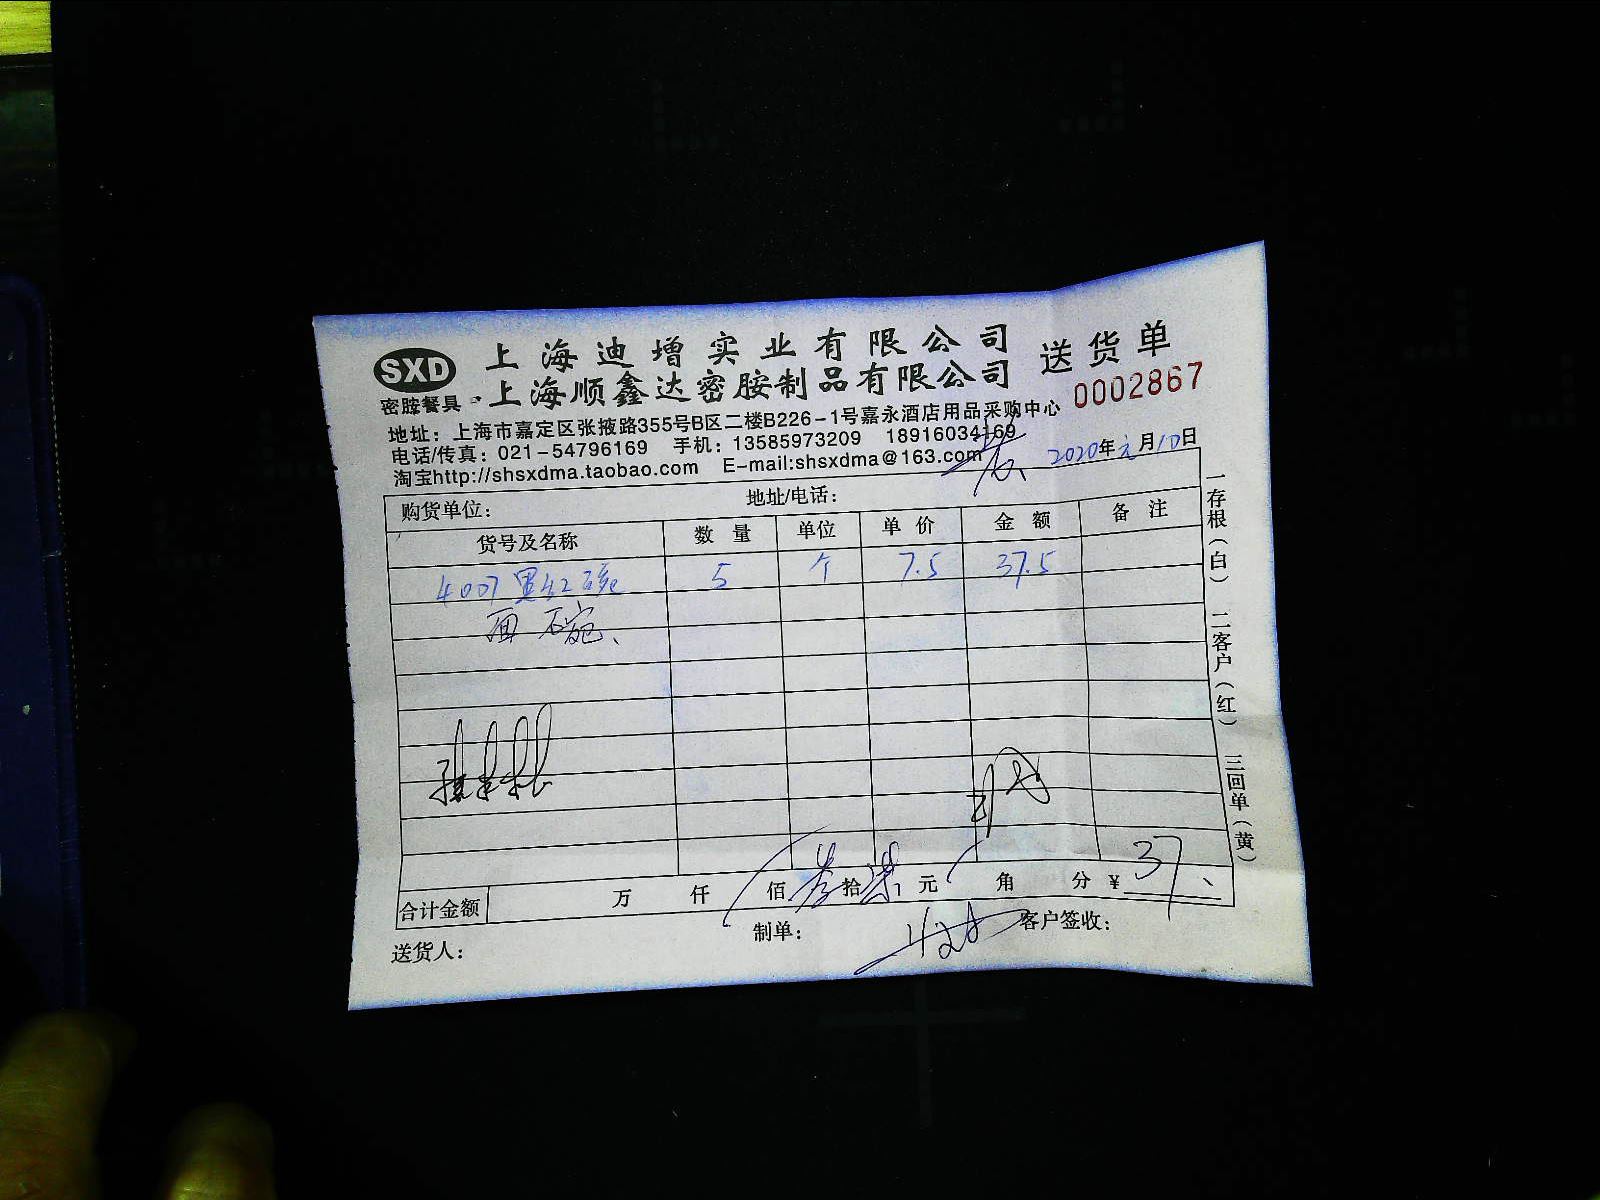 SXD
密胺餐具
上海迪增实业有限公司
上海顺鑫达密胺制品有限公司
送货单
0002867
地址：上海市嘉定区张掖路355号B区二楼B226-1号嘉永酒店用品采购中心
电话/传真：021-54796169 手机：13585973209 18916034169
淘宝http://shsxdma.taobao.com E-mail:shsxdma@163.com
2020年元月10日
购货单位： 地址/电话：
货号及名称 数量 单位 单价 金额 备注
4007黑红碗 5 个 7.5 37.5
面碗、
合计金额 万 仟 佰叁拾柒元 角 分 ¥37、
送货人： 制单： 客户签收：
一存根（白） 二客户（红） 三回单（黄）